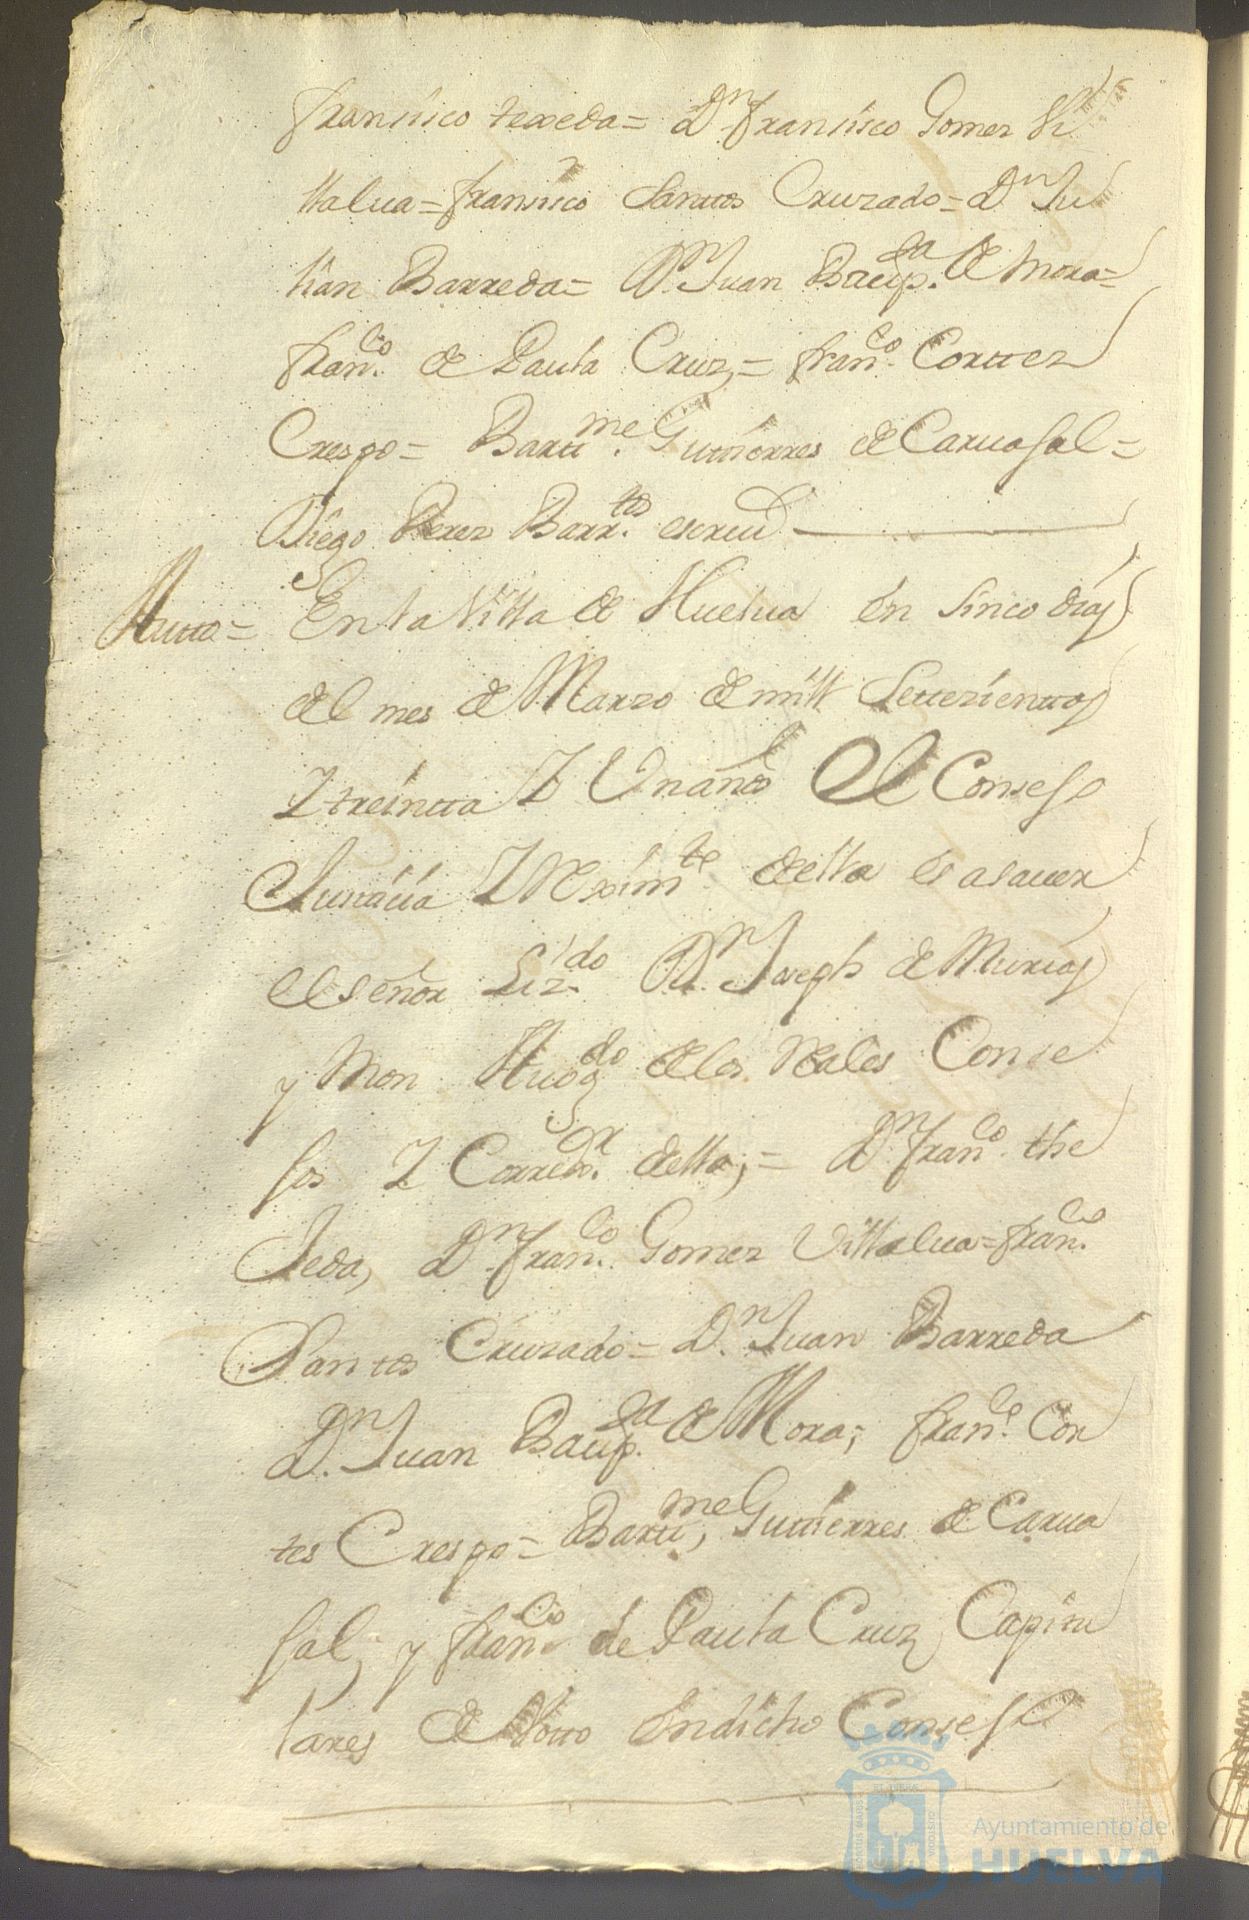 Fransisco texeda = Dn. Fransisco Gomez Vi
llalua = Fransisco Santtos Cruzado = Dn. Ju
lian Barreda = Dn. Juan Baup.ta de Mora =
fran.co de Paula Cruz, = fran.co Corttez
Crespo = Bartt.me Guttierres de Caruasal =
Diego Perez Barr.tos escriu.
Autto = En la Villa de Huelua en sinco dias
del mes de Marzo de mill Settezienttos
Y treintta Y Un años El Consejo
Justicia Y Reximto. della es a sauer
el señor Liz.do Dn. Joseph de Murias
y Mon Auog.do de los Reales Conse
jos Y Corredo.r della; = Dn. fran.co the
Jeda, Dn. fran.co Gomez Villalua = fran.co
Santtos Cruzado = Dn. Juan Barreda
Dn. Juan Baup.ta de Mora; fran.co Cor
tes Crespo = Bartt.me, Guttierres de Carua
sal; y fran.co de Paula Cruz, Capitu
lares de Votto En dicho Consejo
Ayuntamiento de
HUELVA